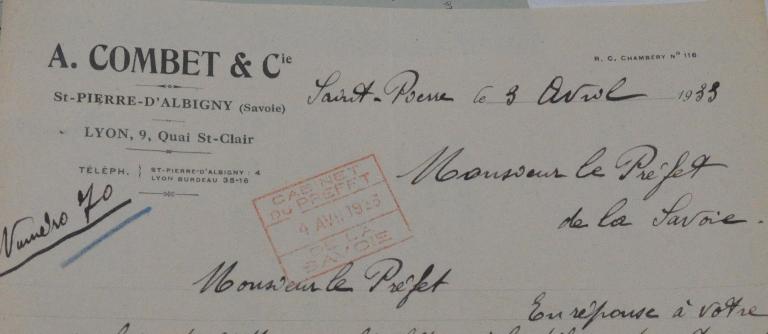 A. COMBET & Cie
R. C. CHAMBÉRY N° 116
St-PIERRE-D'ALBIGNY (Savoie)
Saint-Pierre le 3 Avril 1933
LYON, 9, Quai St-Clair
TÉLÉPH. } ST-PIERRE-D'ALBIGNY : 4
LYON BURDEAU 35-16
Numéro 70
Monsieur le Préfet
de la Savoie.
CABINET
DU PRÉFET
4 AVR 1933
DE LA
SAVOIE
Monsieur le Préfet
En réponse à votre